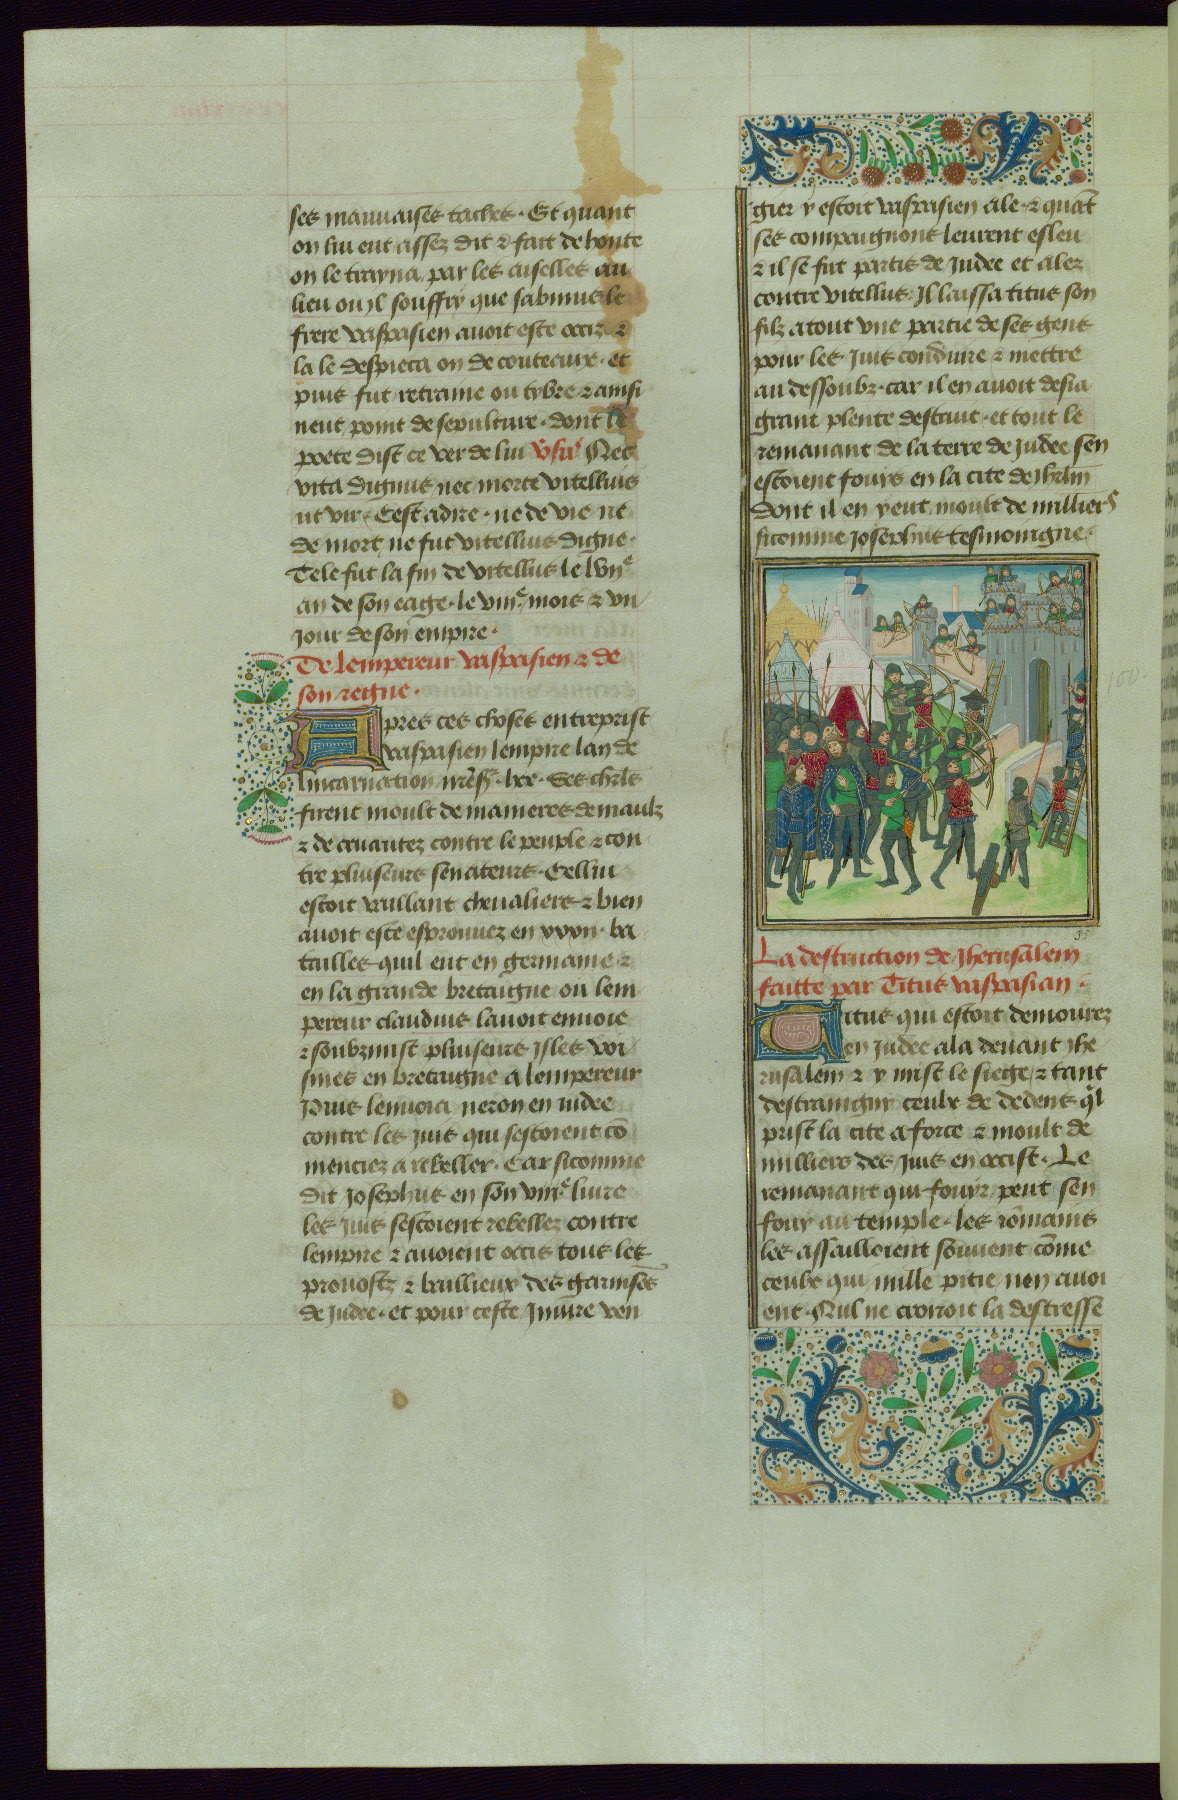 ses mauuaises taches. Et quant
on lui eut assez dit & fait de honte
on le trayna par les aiselles au
lieu ou yl souffry que sabinus le
frere vaspasien auoit este occiz &
la le despieca on de couteaux. et
puis fut retraine ou tybre & ainsi
neut point de sepulture. dont le
poete dist ce ver de lui Nec
vita dignus nec morte vitellius
ut vir. Cest adire. ne de vie ne
de mort ne fut vitellius digne.
Tele fut la fin de vitellus le lviie
an de son eage. le viiie mois & vn
jour de son empire.
De lempereur vaspasien & de
son regne.
Apres ces choses entreprist
vaspasien lempire lan de
lincarnation nrẽ sr. lxx. Ses
firent moult de manieres de maulz
& de cruautez contre le peuple & con
tre pluiseurs senateurs. Cellui
estoit vaillant cheualiers & bien
auoit este esprouuez en xxxii. ba
tailles quil eut en germanie &
en la grande bretaigne ou lem
pereur claudius lauoit enuoie
& soubzmist pluiseurs isles voi
sines en bretaigne a lempereur
Puis lenuoia neron en iudee
contre les juis qui sestoient cõ
menciez a rebeller. Car sicomme
dit josephus en son viiie liure
les juis sestoient rebellez contre
lempire & auoient occis tous les
prouostz & baillieux des garnisõs
de judee. et pour ceste jniure ven
gier y estoit vaspasien ale. & quãt
ses compaignons leurent esleu
& il se fut partis de judee et alez
contre vitellus. Il laissa titus son
filz a tout vne partie de ses gens
pour les juis conduire & mettre
au dessoubz. car il en auoit desia
grant plente destruit. et tout le
remanant de la terre de judee sen
estoient fouys en la cite de jhrlm̃
dont il en yeut moult de milliers
sicomme josephus tesmoingne.
35
La destruction de jherusalem
faitte par Titus vaspasian.
Titus qui estoit demourez
en judee ala deuant jhe
rusalem & y mist le siege. & tant
destraingny ceulx de dedens q̃l
prist la cite a force & moult de
milliers des juis en occist. Le
remanant qui fouyr peut sen
fouy au temple. les rõmains
les assailloient souuent cõme
ceulx qui nulle pitie nen auoi
ent. Nul ne croiroit la destresse
100.